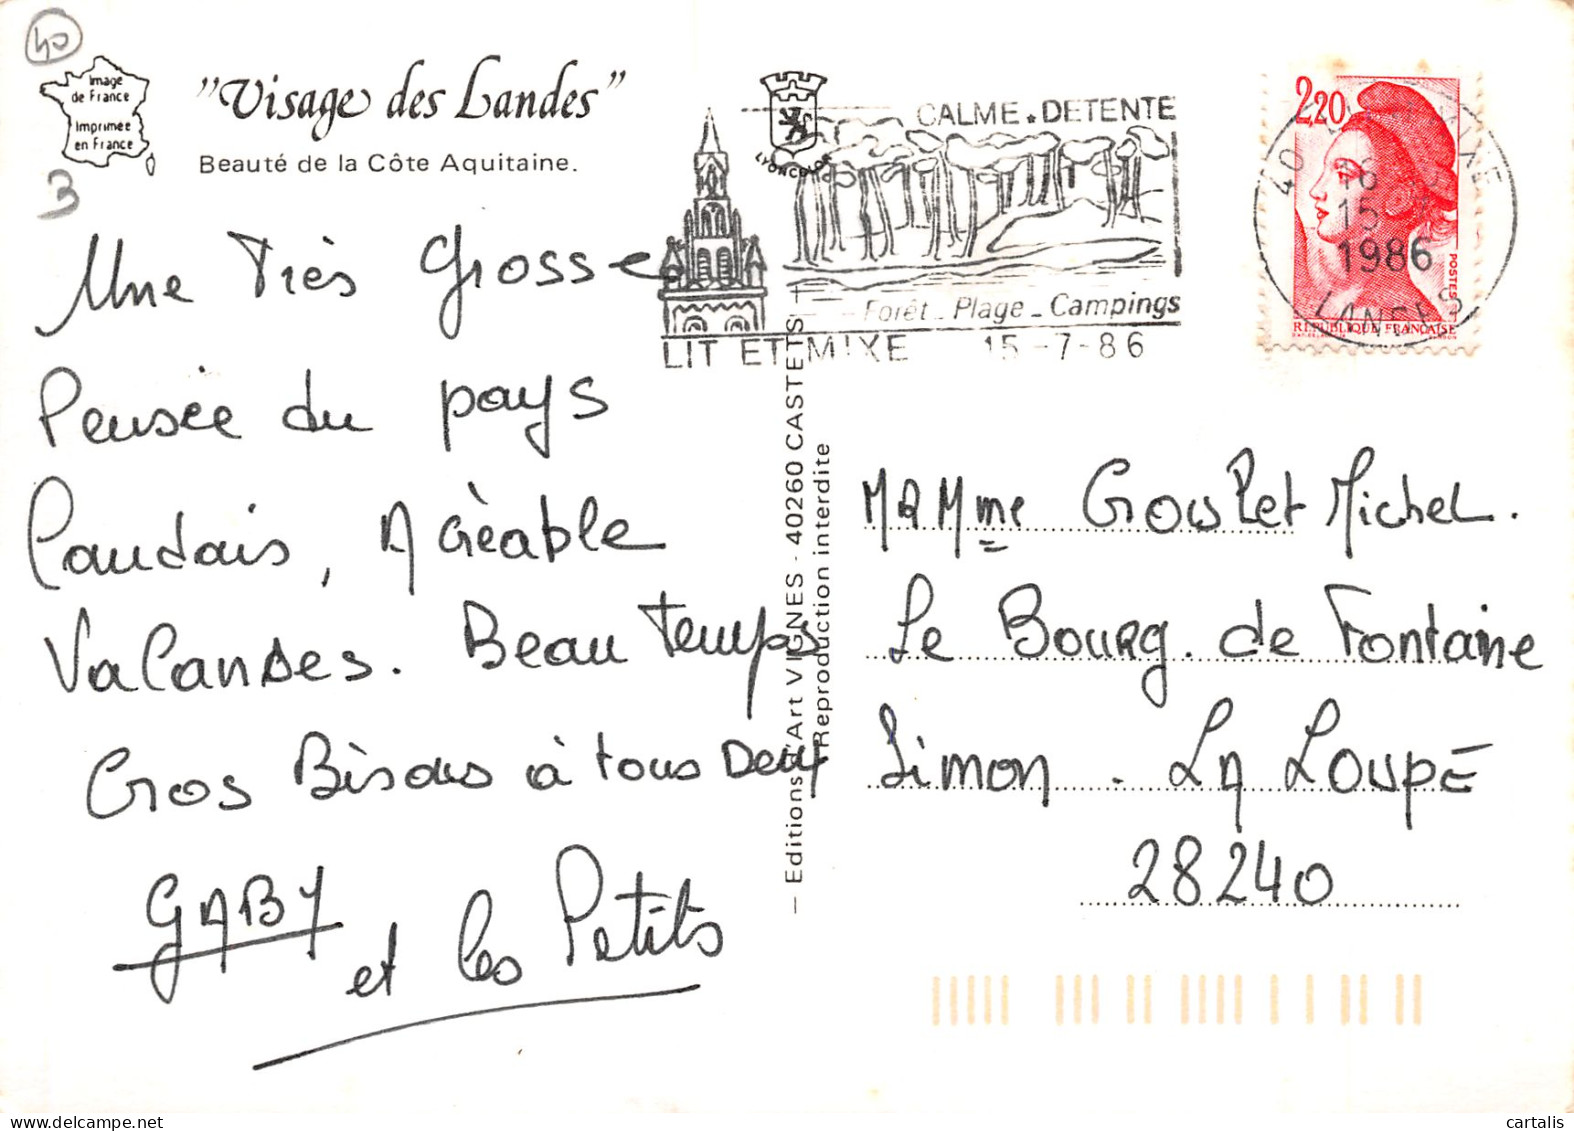 40
Image
de France
Imprimée
en France
"Visage des Landes"
Beauté de la Côte Aquitaine.
3
LYONCOLOR
CALME. DETENTE
Forêt - Plage - Campings
LIT ET MIXE 15 -7- 86
2,20
POSTES
REPUBLIQUE FRANCAISE
40 LIT ET MIXE
16
15 -7
1986
LANDES
Une Très Grosse
Pensée du pays
Landais, Agréable
Vacances. Beau Temps
Gros Bisous à tous Deux
GABY
et les Petits
– Editions d'Art VIGNES - 40260 CASTETS –
Reproduction interdite
M R Mme Michel.
Le Bourg. de Fontaine
Simon - LA LOUPE
28240
cartalis